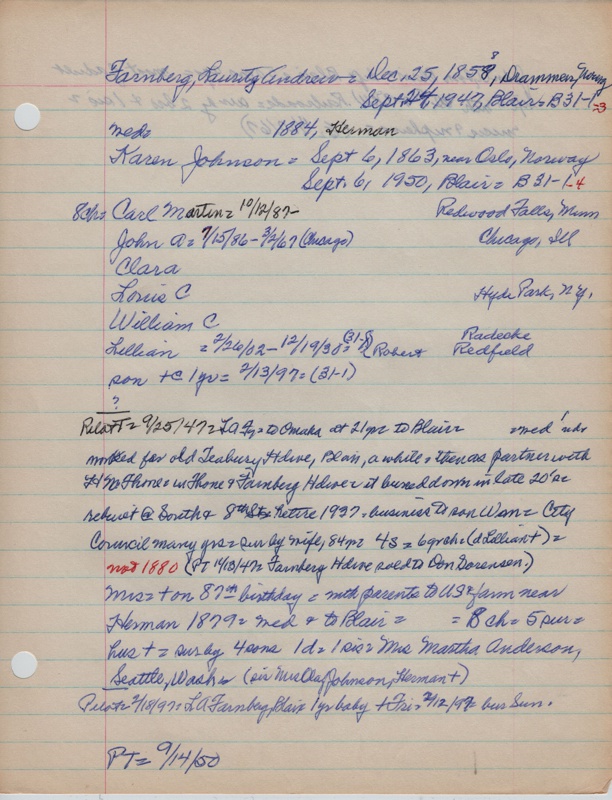 Farnberg, Lauritz Andrew = Dec, 25, 1858, 8 Drammen, Norway
Sept 24, 1947, Blair = B 31-1-3
med= 1884, Herman
Karen Johnson = Sept 6, 1863, near Oslo, Norway
Sept. 6, 1950, Blair = B 31-1-4
8ch= Carl Martin = 10/12/87- Redwood Falls, Minn
John A = 7/15/86 - 3/2/67 (Chicago) Chicago, Ill
Clara
Louis C Hyde Park, N.Y.
William C
Lillian = 2/26/02 - 12/19/38 = (31-1) (Robert Radecke Redfield
son + @ 1 yr = 2/13/97 = (31-1)
?
Pilot = 9/25/47 = LA = to Omaha at 21 yr to Blair = wed
worked for old Teabury Hdwe, Bean, a while = then as partner with
H N Thone = in Thone & Farnberg Hdwe = it burned down in late 20's =
rebuilt @ South & 8th Sts = retire 1937 = business to son Wm = City
Council many yrs = sur by wife, 84 yr = 4s = 6 grch = (d Lillian +) =
not 1880 (PT Farnberg Hdwe sold to Don Sorensen.)
Mrs = + on 87th birthday = with parents to US & farm near
Herman 1879 = wed & to Blair = = 8 ch = 5 sur =
hus + = sur by 4 sons 1d = 1 sis = Mrs Martha Anderson,
Seattle, Wash = (sis Mrs Johnson, Herman +)
Pilot = 2/18/97 = LA Farnberg, Blair 1 yr baby + Fri = 2/12/97 = bur Sun.
PT = 9/14/50